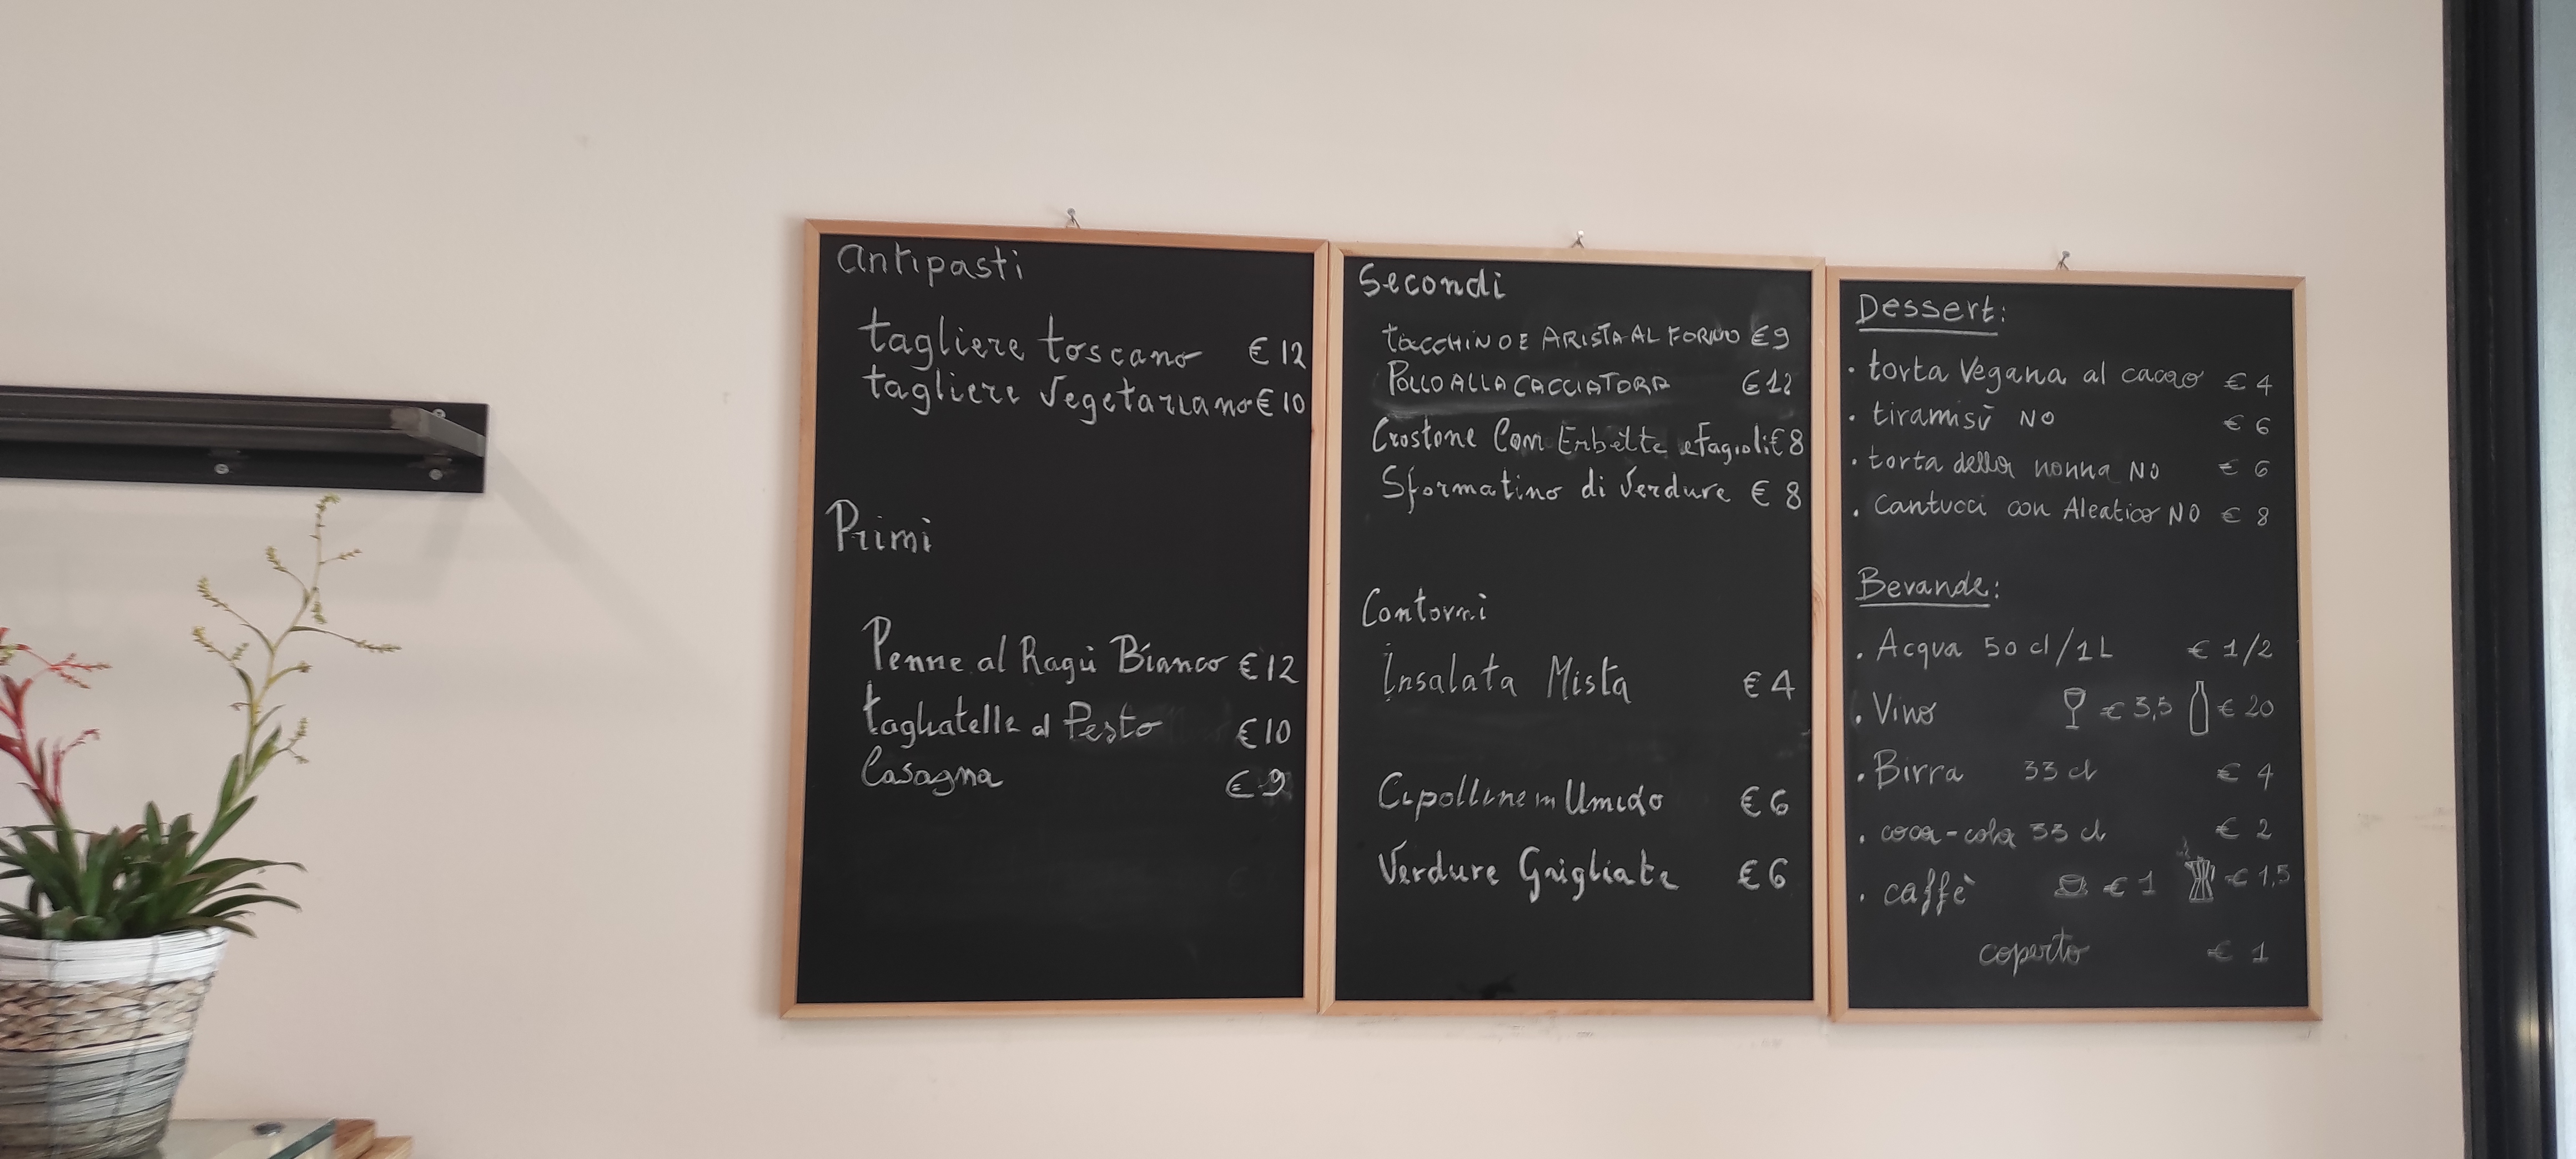 Antipasti
tagliere toscano € 12
tagliere vegetariano € 10
Primi
Penne al Ragù Bianco € 12
tagliatelle al Pesto € 10
lasagna € 9
Secondi
TACCHINO E ARISTA AL FORNO € 9
POLLO ALLA CACCIATORA € 12
Crostone Con Erbette e Fagioli € 8
Sformatino di Verdure € 8
Contorni
Insalata Mista € 4
Cipolline in Umido € 6
Verdure Grigliate € 6
Dessert:
· torta Vegana al cacao € 4
· tiramisù NO € 6
· torta della nonna NO € 6
· Cantucci con Aleatico NO € 8
Bevande:
· Acqua 50 cl/1L € 1/2
· Vino € 3,5 € 20
· Birra 33 cl € 4
· coca-cola 33 cl € 2
· caffè € 1 € 1,5
coperto € 1